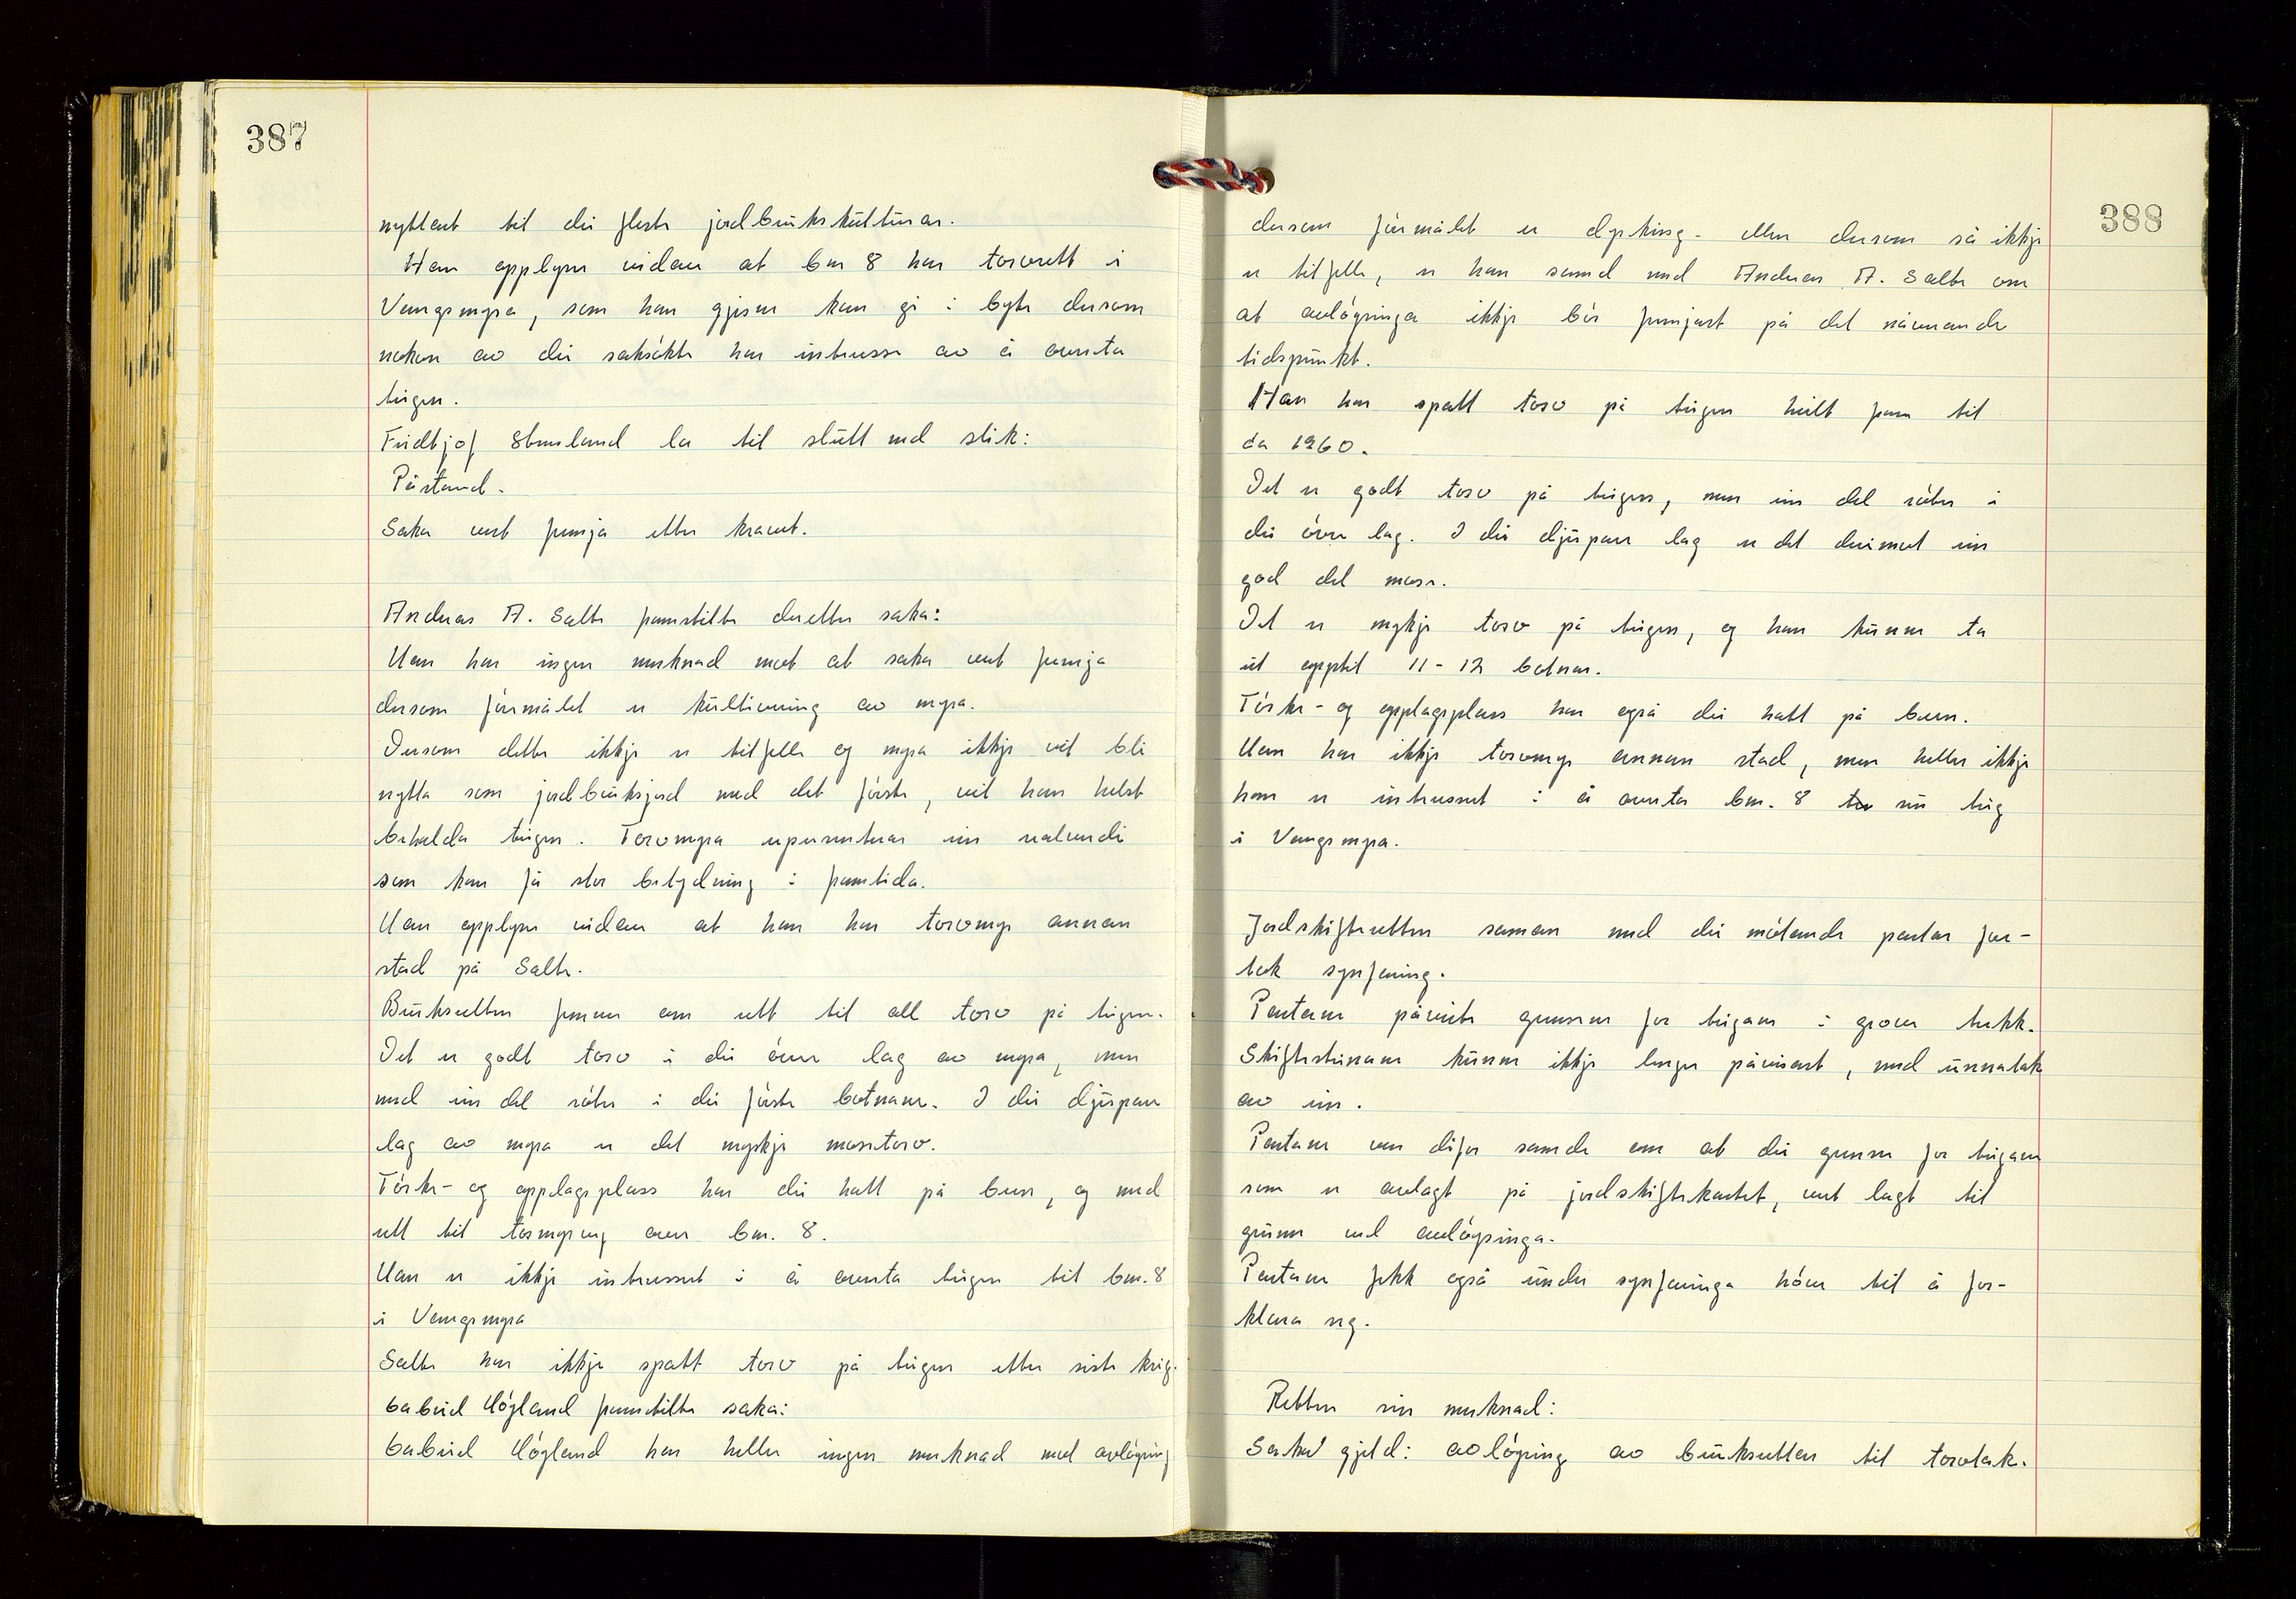 387
nyttast til dei fleste jordbrukskulturar.
Han opplyser vidare at bnr 8 har torvrett i
Vangsmyra, som han gjerne kan gi i byte dersom
nokon av dei saksøkte har interesse av å overta
teigen.
Fridtjof Steneland la til slutt ned slik:
Påstand.
Saka vert fremja etter kravet.
Andreas A. Salte framstilte deretter saka:
Han har ingen merknad mot at saka vert fremja
dersom føremålet er kultivering av myra.
Dersom dette ikkje er tilfelle og myra ikkje vil bli
nytta som jordbruksjord med det første, vil han helst
behalda teigen. Torvmyra representerar ein valuerdi
som kan få stor betydning i framtida.
Han opplyser vidare at han har torvmyr annan
stad på Salte.
Bruksretten femner om rett til all torv på teigen.
Det er godt torv i dei øvre lag av myra, men
med ein del røter i dei første botnane. I dei djupare
lag av myra er det mykje mosetorv.
Tørke- og opplagsplass har dei hatt på bnr, og med
rett til torvmyring over bnr. 8.
Han er ikkje interessert i å overta teigen til bnr. 8
i Vangsmyra
Salte har ikkje spatt torv på teigen etter siste krig.
Gabriel Høyland framstilte saka:
Gabriel Høyland har heller ingen merknad mot avløysing
388
dersom føremålet er dyrking. Men dersom så ikkje
er tilfelle, er han samd med Andreas A. Salte om
at avløysinga ikkje bør fremjast på det nåverande
tidspunkt.
Han har spatt torv på teigen heilt fram til
ca 1960.
Det er godt torv på teigen, men ein del røter i
dei øvre lag. I dei djupare lag er det derimot ein
god del mose.
Det er mykje torv på teigen, og han kunne ta
ut opptil 11-12 botnar.
Tørke- og opplagsplass har også dei hatt på bnr.
Han har ikkje torvmyr annan stad, men heller ikkje
han er interessert i å overta bnr. 8 sin teig
i Vangsmyra.
Jordskifteretten saman med dei møtande partar fore-
tok synfaring.
Partane påviste grensene for teigane i grove trekk.
Skiftesteinane kunne ikkje lenger påvisast, med unnatak
av ein.
Partane var difor samde om at dei grenser for teigane
som er avlagt på jordskiftekartet, vert lagt til
grunn ved avløysinga.
Partane fekk også under synfaringa høve til å for-
klara seg.
Retten sin merknad:
Saka gjeld: avløysing av bruksretten til torvtak.